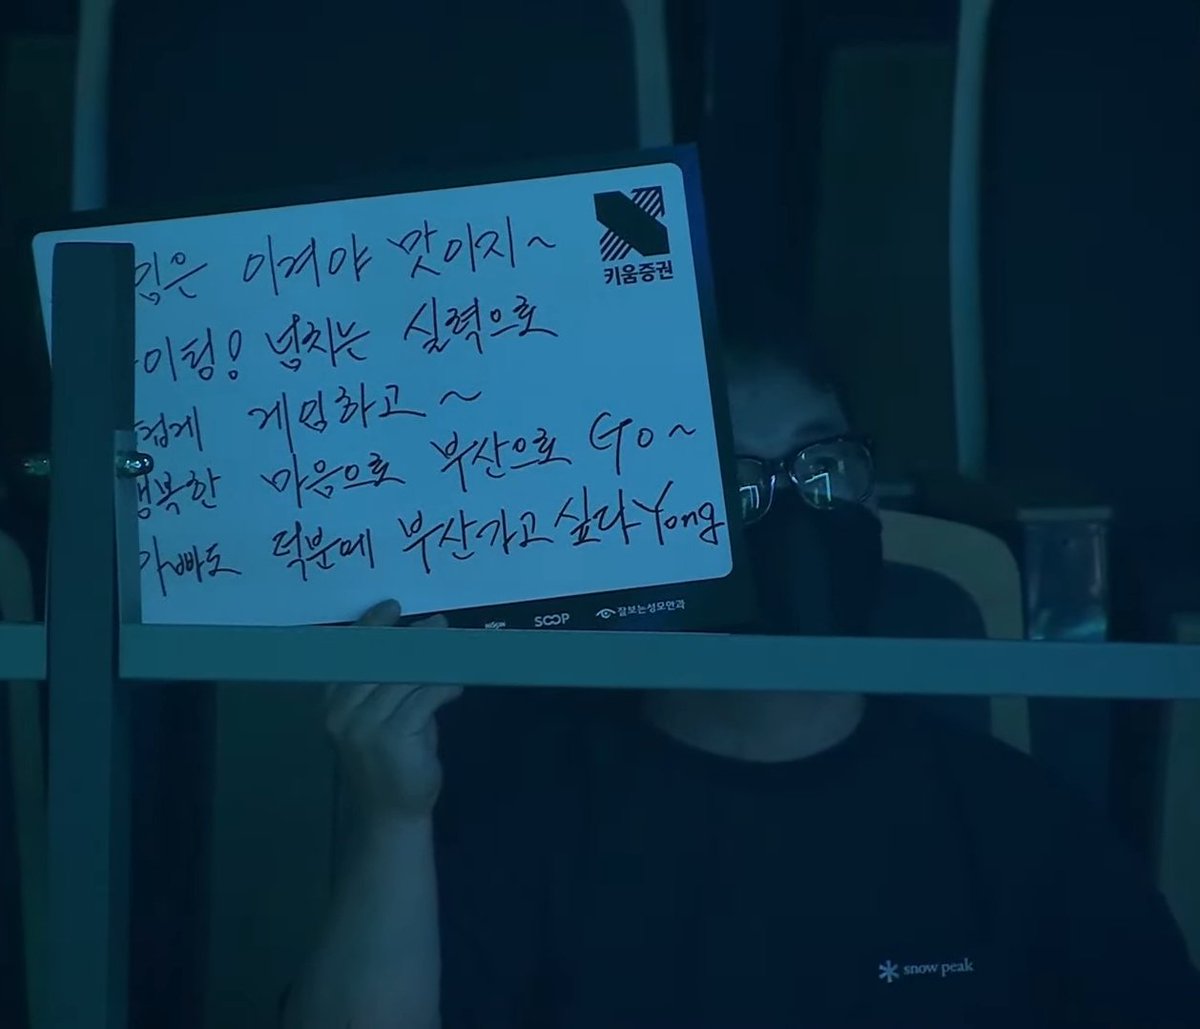 이겨야 맛이지~
키움증권
이팅! 넘치는 실력으로
게임하고~
행복한 마음으로 부산으로 Go~
아빠도 덕분에 부산가고 싶다Yong
SOOP 잘보는성모안과
snow peak